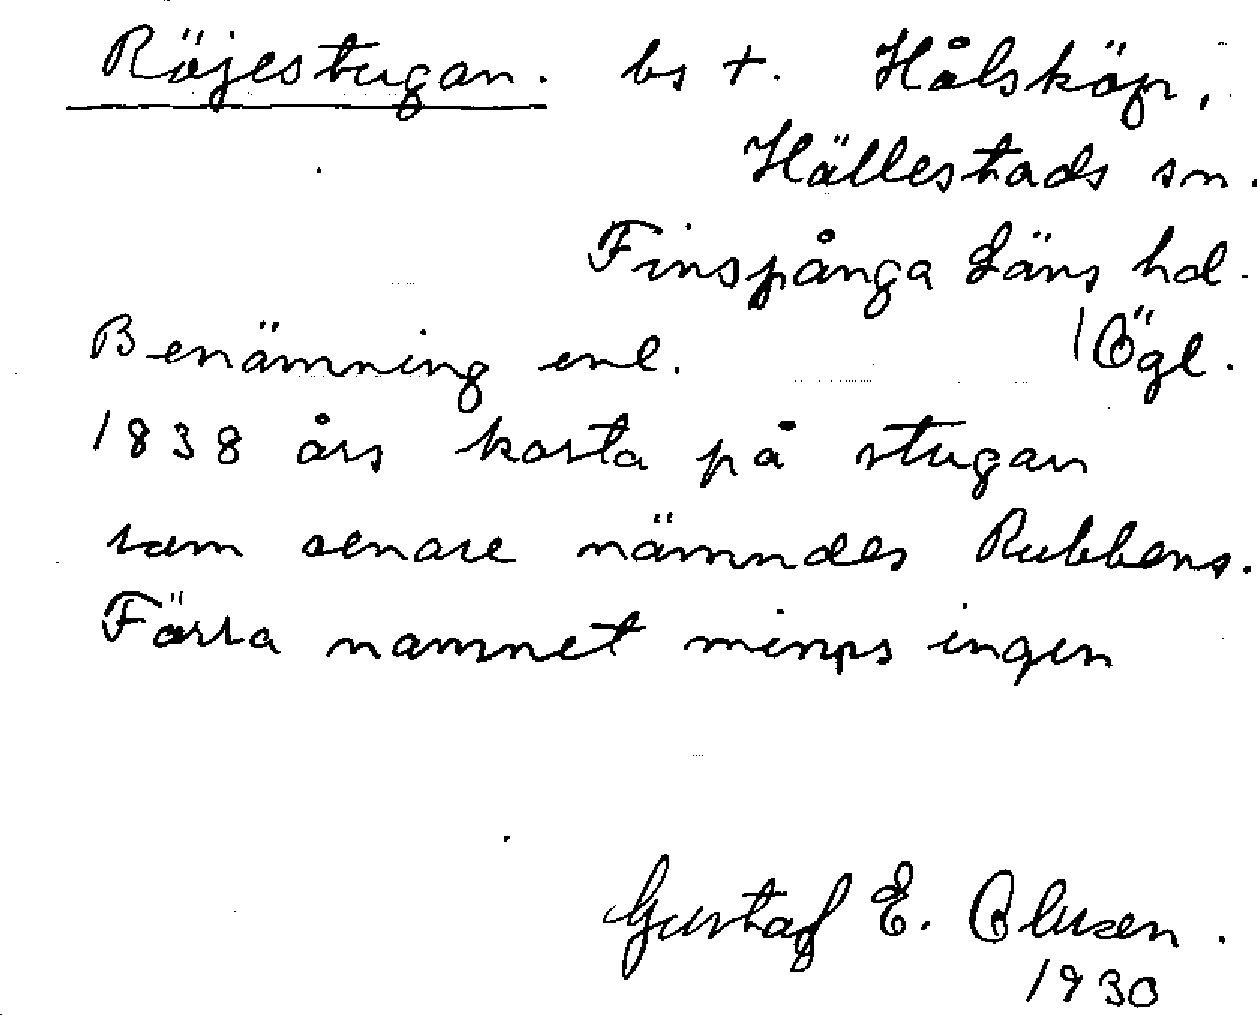 Röjestugan. bs +. Hålsköp,
Hällestads sn.
Finspånga Läns hd.
Benämning enl. /Ögl.
1838 års karta på stugan
som senare nämndes Rubbens.
Förra namnet minns ingen
Gustaf E. Olusen.
1930